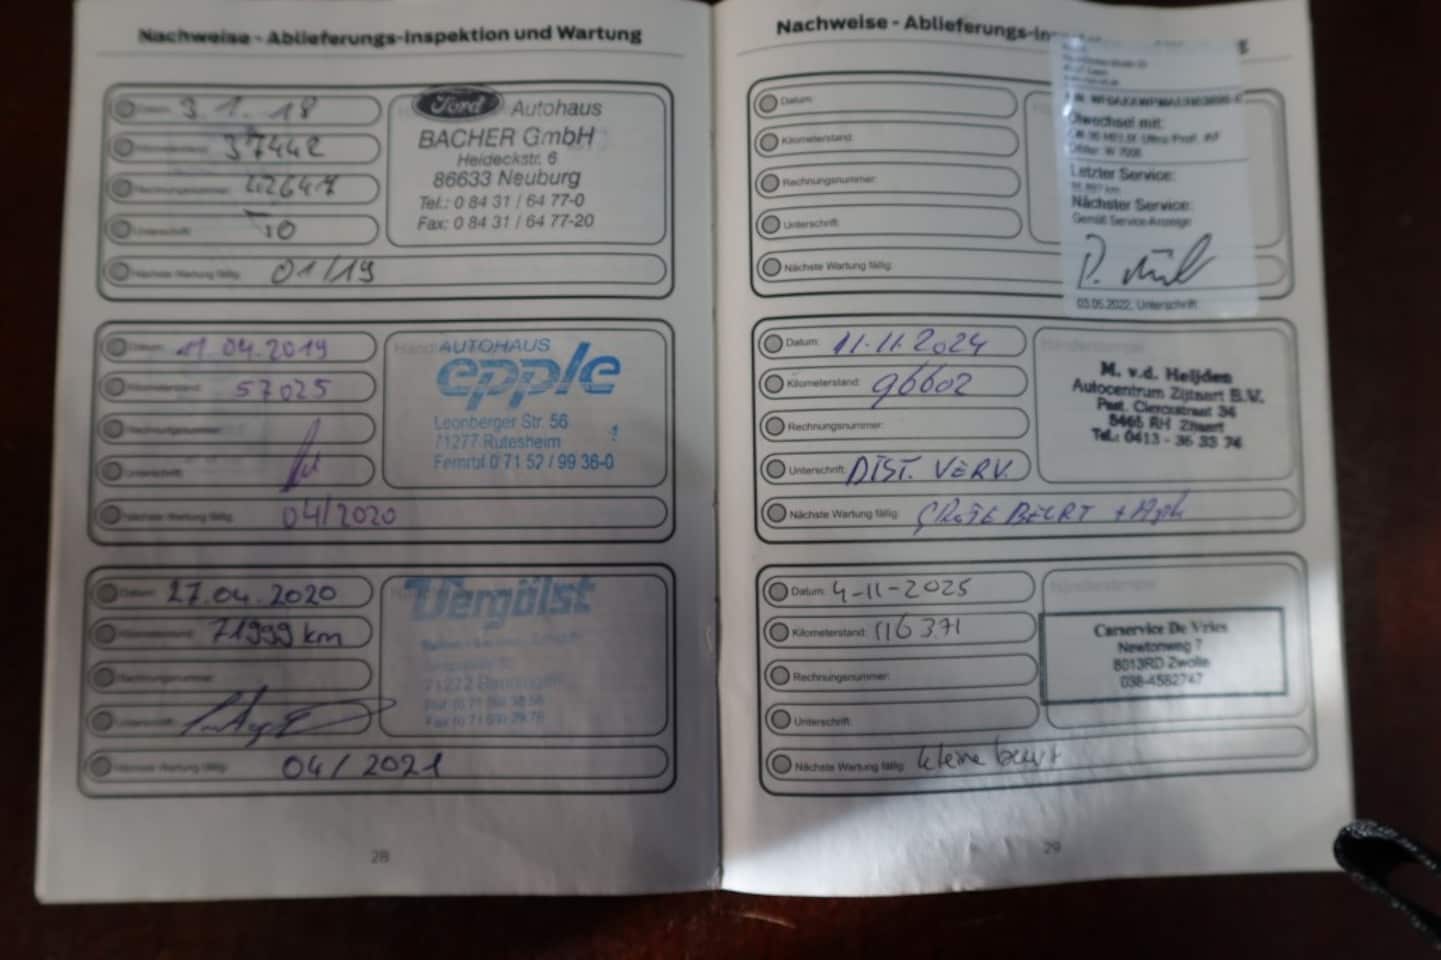 Nachweise - Ablieferungs-Inspektion und Wartung
Datum: 3.1.18
Kilometerstand: 37442
Rechnungsnummer:
Unterschrift:
Nächste Wartung fällig: 01/19
Ford Autohaus
BACHER GmbH
Heideckstr. 6
86633 Neuburg
Tel.: 0 84 31 / 64 77-0
Fax: 0 84 31 / 64 77-20
Datum: 11.04.2019
Kilometerstand: 57025
Rechnungsnummer:
Unterschrift:
Nächste Wartung fällig: 04/2020
AUTOHAUS
epple
Leonberger Str. 56
71277 Rutesheim
Fernruf 0 71 52 / 99 36-0
Datum: 27.04.2020
Kilometerstand: 71999 km
Rechnungsnummer:
Unterschrift:
Nächste Wartung fällig: 04/2021
Vergölst
28
Nachweise - Ablieferungs-
Datum:
Kilometerstand:
Rechnungsnummer:
Unterschrift:
Nächste Wartung fällig:
Ölwechsel mit:
Letzter Service:
Nächster Service:
Gemäß Service-Anzeige
03.05.2022, Unterschrift:
Datum: 11.11.2024
Kilometerstand: 96602
Rechnungsnummer:
Unterschrift: DIST. VERV.
Nächste Wartung fällig: GROTE BEURT
Händlerstempel
M. v.d. Heijden
Autocentrum Zijtaart B.V.
Past. Clercxstraat 36
5465 RH Zijtaart
Tel.: 0413 - 36 33 74
Datum: 4-11-2025
Kilometerstand: 116371
Rechnungsnummer:
Unterschrift:
Nächste Wartung fällig: kleine beurt
Händlerstempel
Carservice De Vries
Newtonweg 7
8013RD Zwolle
038-4582747
29